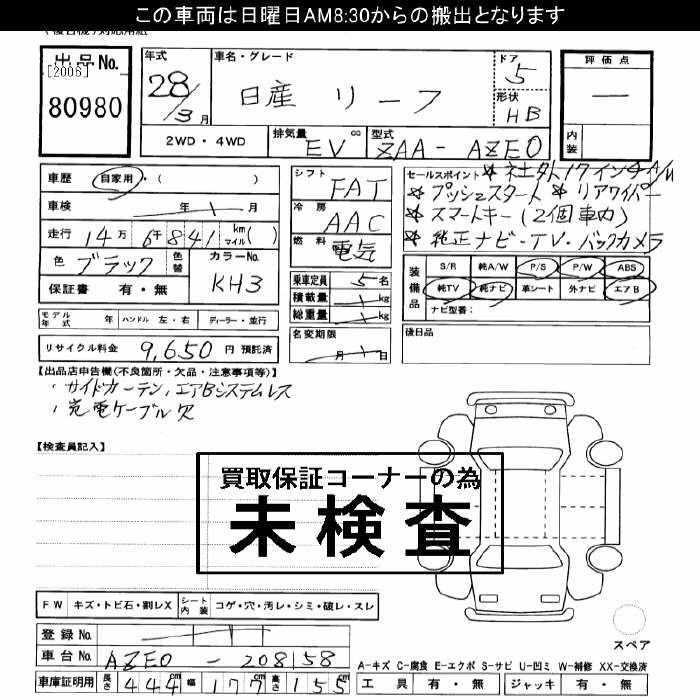 この車両は日曜日AM8:30からの搬出となります
出品No.
[2006]
80980
年式 28/3月
車名・グレード 日産 リーフ
ドア 5
形状 HB
評価点 —
内装
2WD・4WD
排気量 EV cc
型式 ZAA-AZE0
車歴 自家用・( )
車検 年 月
走行 14万 6千 841 km マイル( )
色 ブラック 色替
カラーNo. KH3
保証書 有・無
モデル年式 年 ハンドル 左・右 ディーラー・並行
リサイクル料金 9,650 円 預託済
シフト FAT
冷房 AAC
燃料 電気
乗車定員 5名
積載量 kg
総重量 kg
名変期限 月 日
セールスポイント ☆社外17インチA/W
☆プッシュスタート ☆リアワイパー
☆スマートキー(2個車内)
☆純正ナビ・TV・バックカメラ
装備品
S/R 純A/W P/S P/W ABS
純TV 純ナビ 革シート 外ナビ エアB
ナビ型番:
後日品
【出品店申告欄(不良箇所・欠品・注意事項等)】
・サイドカーテン,エアBシステムレス
・充電ケーブル欠
【検査員記入】
買取保証コーナーの為
未検査
FW キズ・トビ石・割レX シート内装 コゲ・穴・汚レ・シミ・破レ・スレ
登録No.
車台No. AZE0-208158
車庫証明用 長さ 444cm 幅 177cm 高さ 155cm
スペア
A-キズ C-腐食 E-エクボ S-サビ U-凹ミ W-補修 XX-交換済
工具 有・無 ジャッキ 有・無